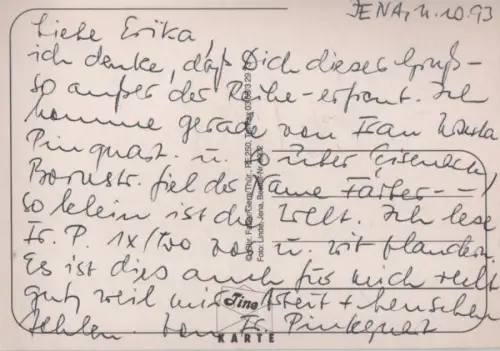 JENA, 11.10.93
Liebe Erika,
ich denke, daß Dich dieser Gruß -
so außer der Reihe - erfreut. Ich
komme gerade von Frau
Pinquart. u. so über Eisenach/
Bornstr. fiel der Name Färber - -
so klein ist die Welt. Ich lese
Fr. P. 1x/Wo vor u. wir plaudern.
Es ist dies auch für mich recht
gut, weil mir Arbeit + Menschen
fehlen. Fr. Pinkquart
Foto: Linde, Jena,
Tino
KARTE